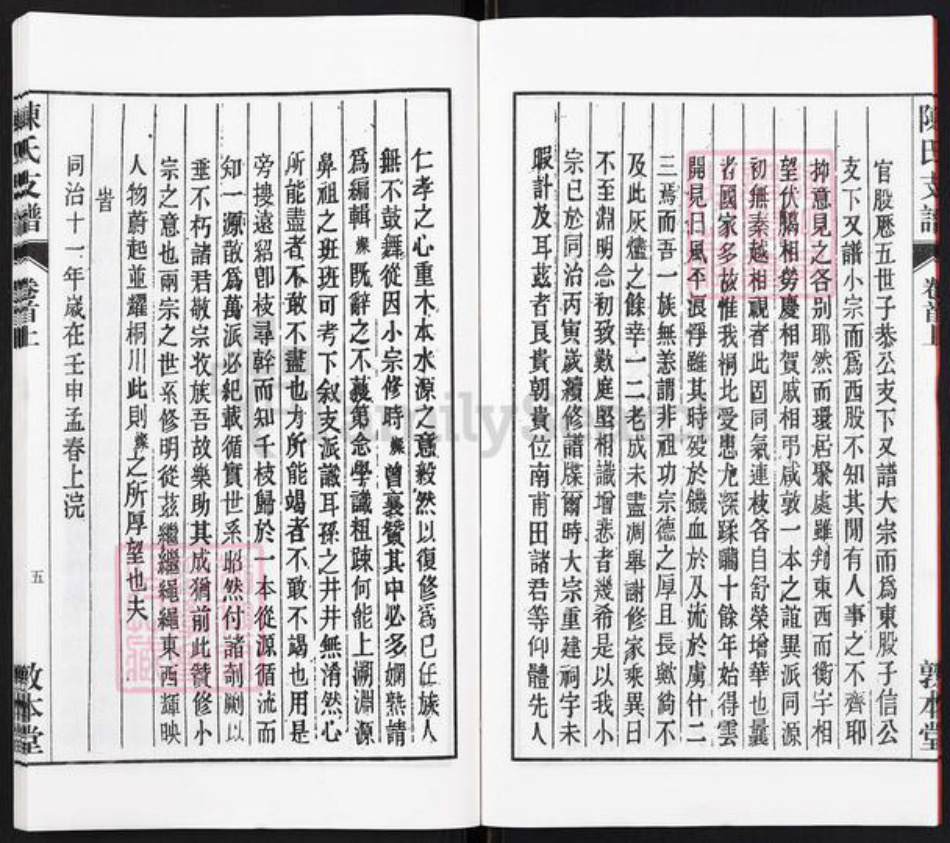 陳氏支譜 卷首上 敦本堂
官股歷五世子恭公支下又譜大宗而爲東股子信公
支下又譜小宗而爲西股不知其閒有人事之不齊耶
抑意見之各別耶然而環居聚處雖判東西而衡宇相
望伏臘相勞慶相賀戚相弔咸敦一本之誼異派同源
初無秦越相視者此固同氣連枝各自舒榮增華也曩
者國家多故惟我桐北受患尤深蹂躪十餘年始得雲
開見日風平浪淨雖其時歿於饑血於刄流於虜什二
三焉而吾一族無恙謂非祖功宗德之厚且長歟夠不
及此灰燼之餘幸一二老成未盡凋舉謝修家乘異日
不至淵明念初致歎庭堅相識增悲者幾希是以我小
宗已於同治丙寅歲續修譜牒爾時大宗重建祠宇未
暇計及耳茲者艮貴朝貴位南甫田諸君等仰體先人
仁孝之心重木本水源之意毅然以復修爲已任族人
無不鼓舞從因小宗修時 曾襄贊其中必多嫻熟請
爲編輯 既辭之不獲第念學識粗踈何能上溯淵源
鼻祖之班班可考下叙支派議耳孫之井井無淆然心
所能盡者不敢不盡也力所能竭者不敢不竭也用是
旁搜遠紹卽枝尋幹而知千枝歸於一本從源循流而
知一源散爲萬派必紀載循實世系昭然付諸剞劂以
垂不朽諸君敬宗收族吾故樂助其成猶前此贊修小
宗之意也兩宗之世系修明從茲繼繼繩繩東西輝映
人物蔚起並耀桐川此則 之所厚望也夫
旹
同治十一年歲在壬申孟春上浣
陳氏支譜 卷首上 五 敦本堂
FamilySearch